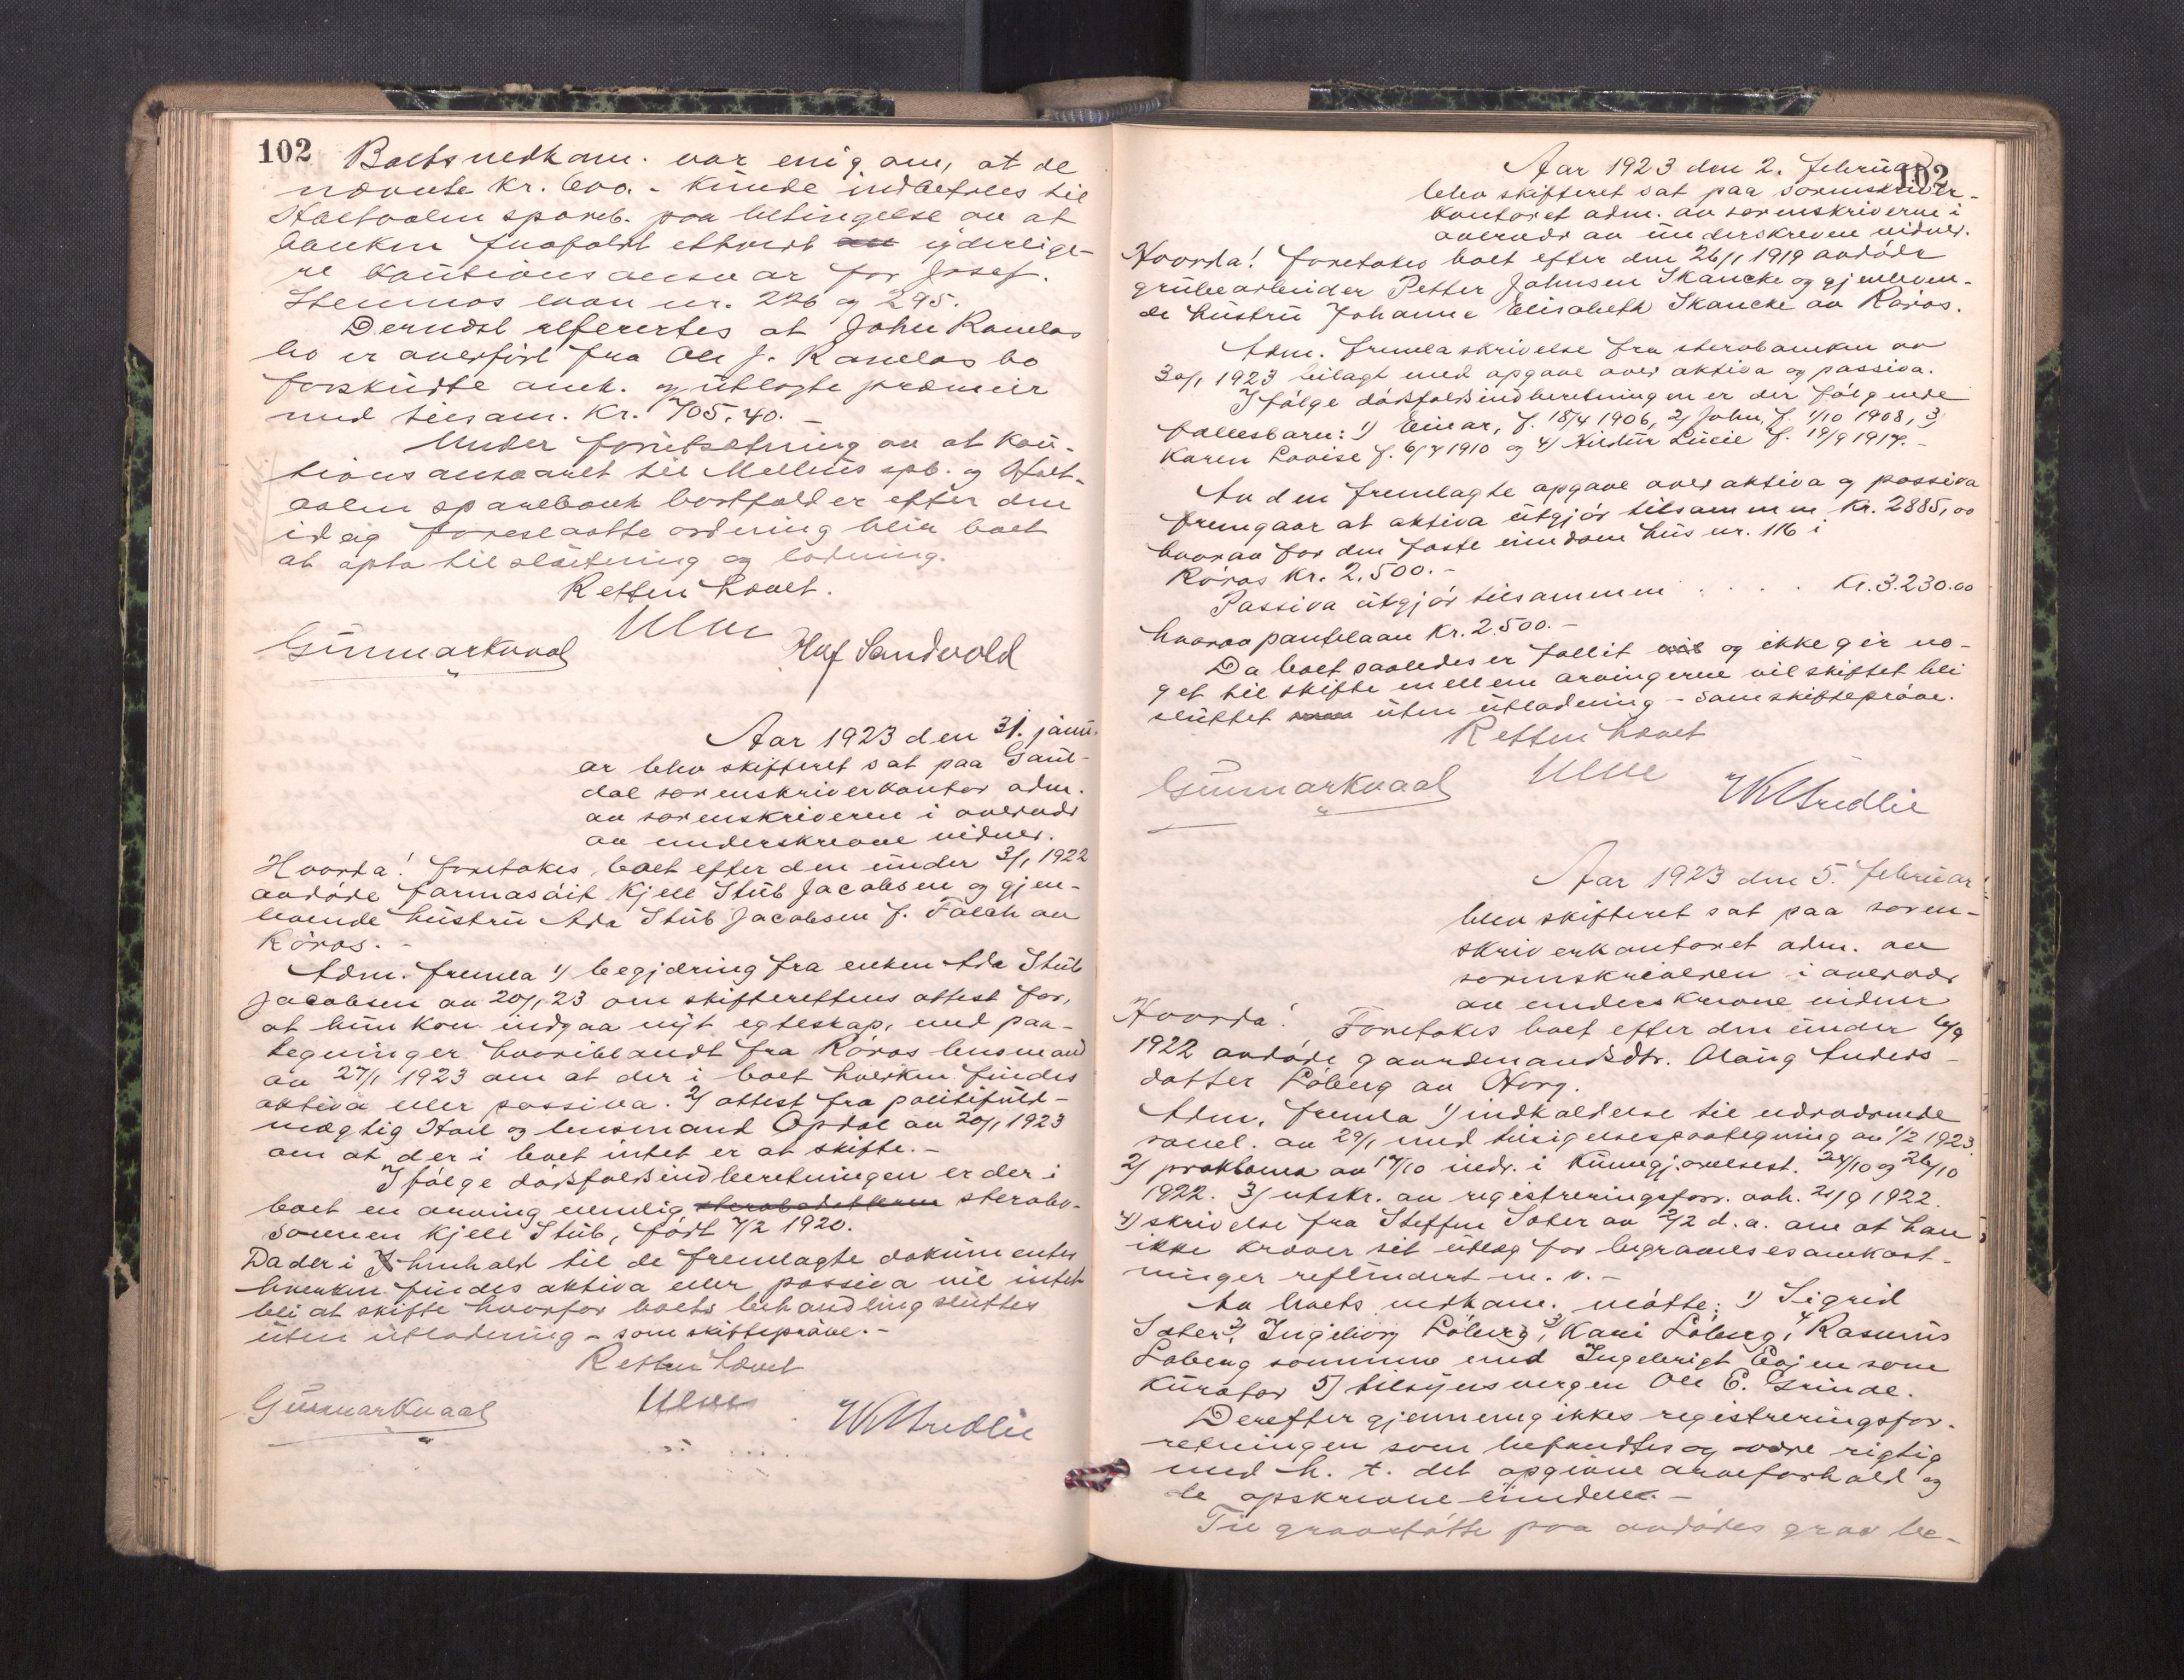 102
Boets vedkom. var enig om, at de
nævnte kr. 600.- kunde indbetales til
Holtaalen spareb. paa betingelse av at
banken frafaldt ethvert yderlige-
re kautionsansvar for Josef
Stennes laan nr. 226 og 295.
Dernæst refertes at John Ramlos
bo er overført fra Ole J. Ramlos bo
forskudte omk. og utlagte præmier
med tilsam. Kr. 705,40.-
Under forutsætning av at kau-
tionsansvaret til Melhus spb. og Holt-
aalen sparebank bortfalder efter den
idag foreslaatte ordning blir boet
at opta til slutning og lodning.
Retten hævet.
Ulve
Gunnar Kvaal Haf Sandvold
Aar 1923 den 31. janu-
ar blev skifteret sat paa Gaul-
dal sorenskriverkontor adm.
av sorenskriveren i overvær
av underskrevne vidner.
Hvorda! foretokes boet efter den under 3/1 1922
avdøde farmasøit Kjell Stub Jacobsen og gjen-
levende hustru Ada Stub Jacobsen f. Falch av
Röros.-
Adm. fremla 1) begjæring fra enken Ada Stub
Jacobsen av 20/1 23 om skifterettens attest for,
at hun kan indgaa nyt egteskap, med paa-
tegninger hvoriblandt fra Röros lensmand
av 27/1 1923 om at der i boet hverken findes
aktiva eller passiva. 2) attest fra politifuld-
mægtig Hoel og lensmand Opdal av 20/1 1923
om at der i boet intet er at skifte.-
Ifølge dødsfaldsindberetningen er der i
boet en arving nemlig sterbodatteren sterbo-
sønnen Kjell Stub, født 7/2 1920.
Da der i henhold til de fremlagte dokumenter
hverken findes aktiva eller passiva vil intet
bli at skifte hvorfor boets behandling sluttes
uten utlodning - som skifteprøve.-
Retten hævet
Ulve
Gunnar Kvaal
102
Aar 1923 den 2. februar
blev skifteret sat paa sorenskriver-
kontoret adm. av sorenskriveren i
overvær av underskrevne vidner.
Hvorda! foretokes boet efter den 26/1 1919 avdøde
grubearbeider Petter Johnsen Skancke og gjenleven-
de hustru Johanne Elisabeth Skancke av Røros.
Adm. fremla skrivelse fra sterboenken av
30/1 1923 bilagt med opgave over aktiva og passiva.
Ifølge dødsfaldsindberetningen er der følgende
fællesbarn: 1) Einar, f. 18/4 1906, 2) John, f. 1/10 1908, 3)
Karen Lovise f. 6/7 1910 og 4) Lucie f. 19/9 1917.-
Av den fremlagte opgave over aktiva og passiva
fremgaar at aktiva utgjør tilsammen kr. 2885,00
hvorav for den faste eiendom hus nr. 116 i
Röros kr. 2.500.-
Passiva utgjør tilsammen . . . . Kr. 3.230.00
hvorav pantelaan kr. 2.500.-
Da boet saaledes er fallit og ikke gir no-
get til skifte mellem arvingerne vil skiftet bli
sluttet uten utlodning - som skifteprøve.
Retten hævet
Ulve
Gunnar Kvaal
Aar 1923 den 5. februar
blev skifteret sat paa soren-
skriverkontoret adm. av
sorenskriveren i overvær
av underskrevne vidner
Hvorda! Foretokes boet efter den under 6/9
1922 avdøde gaardmandsdtr. Olaug Anders-
datter Løberg av Horg.
Adm. fremla 1) indkaldelse til nærværende
saml. av 29/1 med tilsigelsespaategning av 1/2 1923.
2) proklama av 17/10 indr. i Kunngjørelsest. 24/10 og 26/10
1922. 3) utskr. av registreringsforr. avh. 21/9 1922.
4) skrivelse fra Steffen Sater av 2/2 d.a. om at han
ikke kræver sit utlæg for begravelsesomkost-
ninger refundert m.v.-
Av boets vedkom. møtte: 1) Sigrid
Sater, 2) Ingeborg Løberg, 3) Kari Løberg, 4) Rasmus
Løberg sammen med Ingebrigt som
kurator 5) tilsynsvergen Ole E. Grinde.
Derefter gjennemgikkes registreringsfor-
retningen som befandtes og være rigtig
med h. t. det opgivne arveforhold og
de opskrevne eiendele.-
Til gravstøtte paa avdødes grav be-